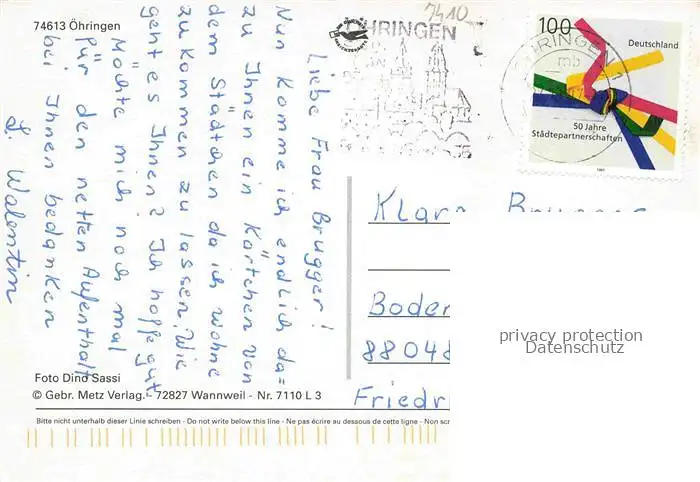 74613 Öhringen
Liebe Frau Brugger!
Nun komme ich endlich da=
zu Ihnen ein Kärtchen von
dem Städtchen da ich wohne
zu kommen zu lassen. Wie
geht es Ihnen? Ich hoffe gut.
Möchte mich noch mal
für den netten Aufenthalt
bei Ihnen bedanken
S. Walentin
7410
ÖHRINGEN
ÖHRINGEN
mb
100
Deutschland
50 Jahre
Städtepartnerschaften
1997
Klara Brugger
Boden
88048
Friedri
privacy protection
Datenschutz
Foto Dino Sassi
© Gebr. Metz Verlag. 72827 Wannweil - Nr. 7110 L 3
Bitte nicht unterhalb dieser Linie schreiben - Do not write below this line - Ne pas écrire au dessous de cette ligne - Non scr